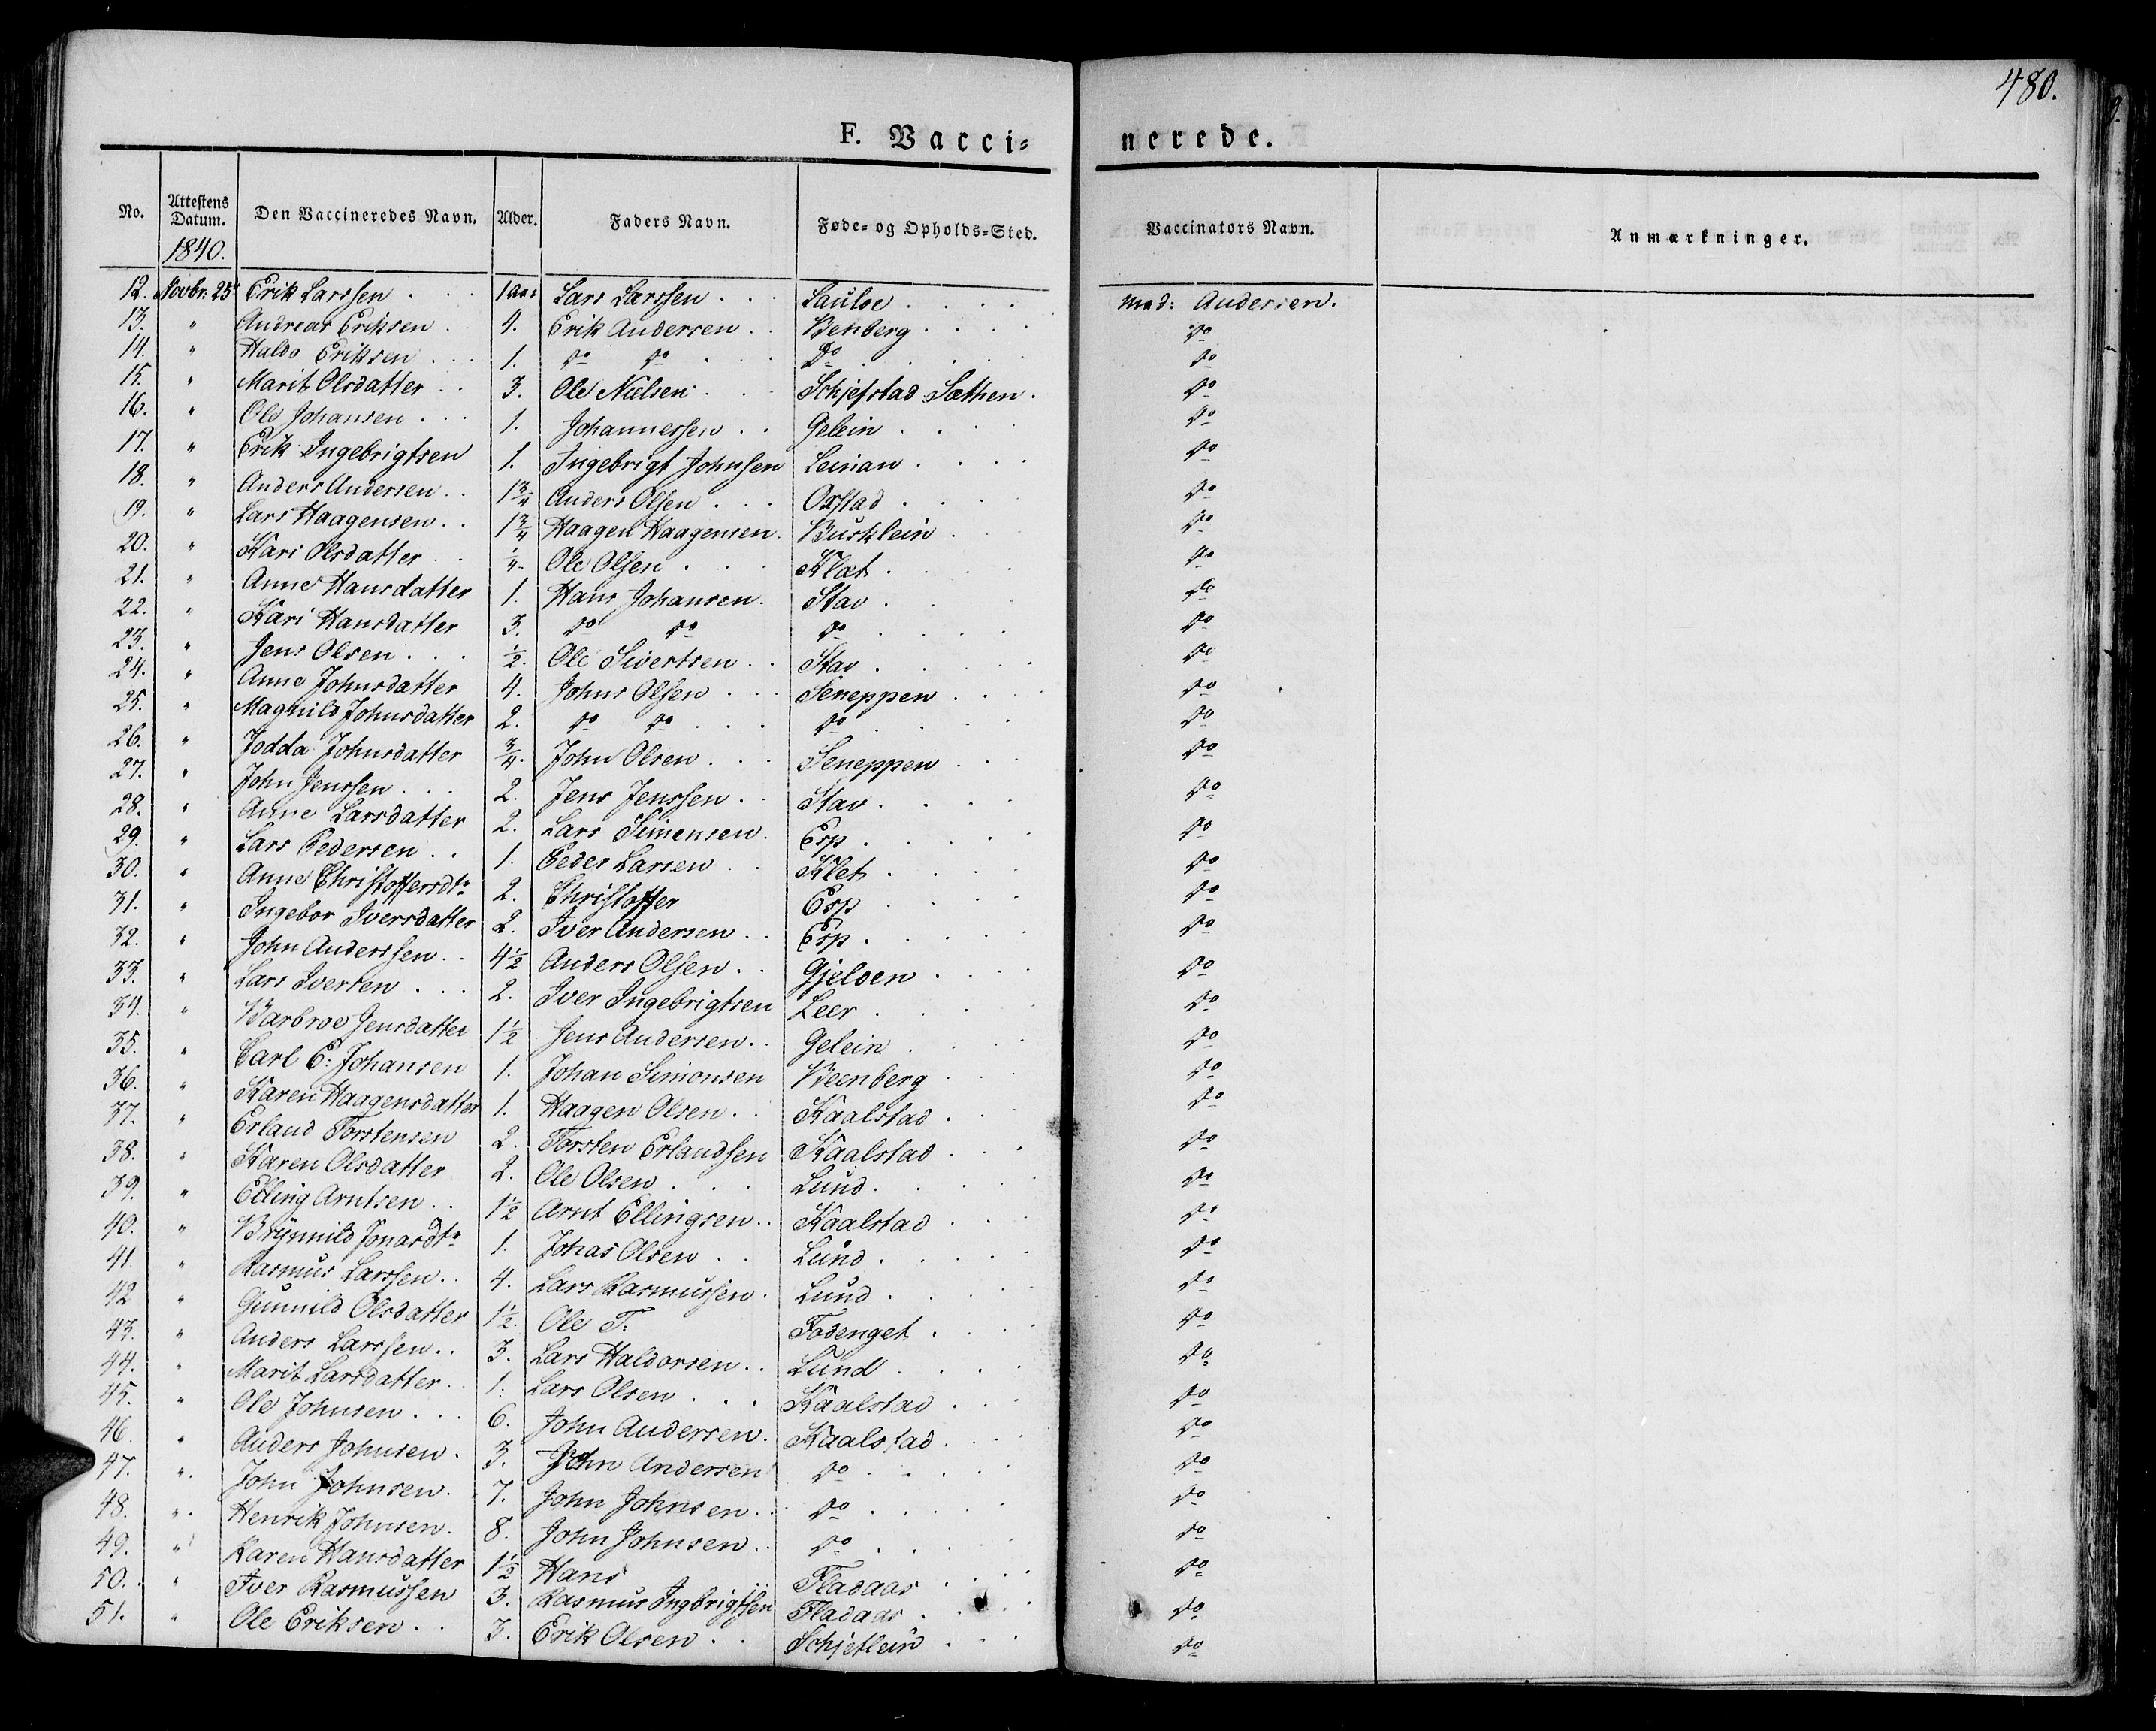 480.
F. Vacci= nerede.
No. Attestens Datum. Den Vaccineredes Navn. Alder. Faders Navn. Føde- og Opholds-Sted. Vaccinators Navn. Anmærkninger.
1840.
12. Novbr: 25 Erik Larssen . . 1 Aar Lars Larssen . . . Lauloe . . . . Med: Andersen.
13. " Andreas Eriksen . . 4. Erik Andersen . . Benberg . . . . do
14. " Haldo Eriksen . . . 1. do do . . . Do . . . . do
15. " Marit Olsdatter . . 3. Ole Nielsen . . . Schjefstad Sæthen. do
16. " Ole Johansen . . . 1. Johannessen . . Gelein . . . . do
17. " Erik Ingebrigtsen 1. Ingebrigt Johnsen Leinan . . . . do
18. " Anders Andersen . . 1 3/4 Anders Olsen . . . Oxstad . . . do
19. " Lars Haagensen . . 1 3/4 Haagen Haagensen. Busklein . . do
20. " Kari Olsdatter . . 1/4. Ole Olsen . . . Klæt . . . . do
21. " Anne Hansdatter 1. Hans Johansen. Stav . . . do
22. " Kari Hansdatter 3. do do do . . . . do
23. " Jens Olsen . . . 1/2. Ole Sivertsen . . Stav . . . . do
24. " Anne Johnsdatter 4. Johns Olsen . . . Seneppen . . . . do
25. " Magnild Johnsdatter 2. do do . . . do . . . do
26. " Jodda Johnsdatter 3/4. John Olsen . . . Seneppen . . . do
27. " John Jenssen . . . 2. Jens Jenssen . . Stav . . . . do
28. " Anne Larsdatter 2. Lars Simensen. Esp . . . . do
29. " Lars Pedersen . . 1. Peder Larsen . . Klet . . . . do
30. " Anne Christoffersdtr 2. Christoffer Esp . . . . do
31. " Ingebor Iversdatter 2. Iver Andersen . . Esp . . . . do
32. " John Anderssen . . 4 1/2 Anders Olsen . . Gjelven . . . . do
33. " Lars Iversen . . . 2. Iver Ingebrigtsen Leer . . . do
34. " Barbroe Jensdatter 1 1/2 Jens Andersen. . Gelein . . . . do
35. " Carl E: Johansen 1. Johan Simonsen Beenberg . . . do
36. " Karen Haagensdatter 1. Haagen Olsen . . Kaalstad . . . do
37. " Erland Torstensen 2. Torsten Erlandsen Kaalstad . . . do
38. " Karen Olsdatter 2. Ole Olsen . . . Lund . . . . do
39. " Elling Arntsen . . 1 1/2 Arnt Ellingsen . . Kaalstad . . . do
40. " Brynnild Jonasdtr 1. Johas Olsen . . Lund . . . . do
41. " Rasmus Larssen . . 4. Lars Rasmussen . Lund . . . . do
42 " Gunnild Olsdatter 1 1/2. Ole T: Fodenget . . . . do
43. " Anders Larssen . . 3. Lars Haldorsen . . Lund . . . . do
44. " Marit Larsdatter . . 1. Lars Olsen . . . Kaalstad . . . do
45. " Ole Johnsen . . . 6. John Andersen . Kaalstad . . . do
46. " Anders Johnsen . 3. John Andersen do . . . . do
47. " John Johnsen . 7. John Johnsen . . do . . . do
48. " Henrik Johnsen. 8. John Johnsen . . do . . . . do
49. " Karen Hansdatter 1 1/2 Hans Fladaas . . . . do
50. " Iver Rasmussen 3. Rasmus Ingbrigtsen Fladaas . . . . do
51. " Ole Eriksen . . 3. Erik Olsen . . Schjetlein . . . do